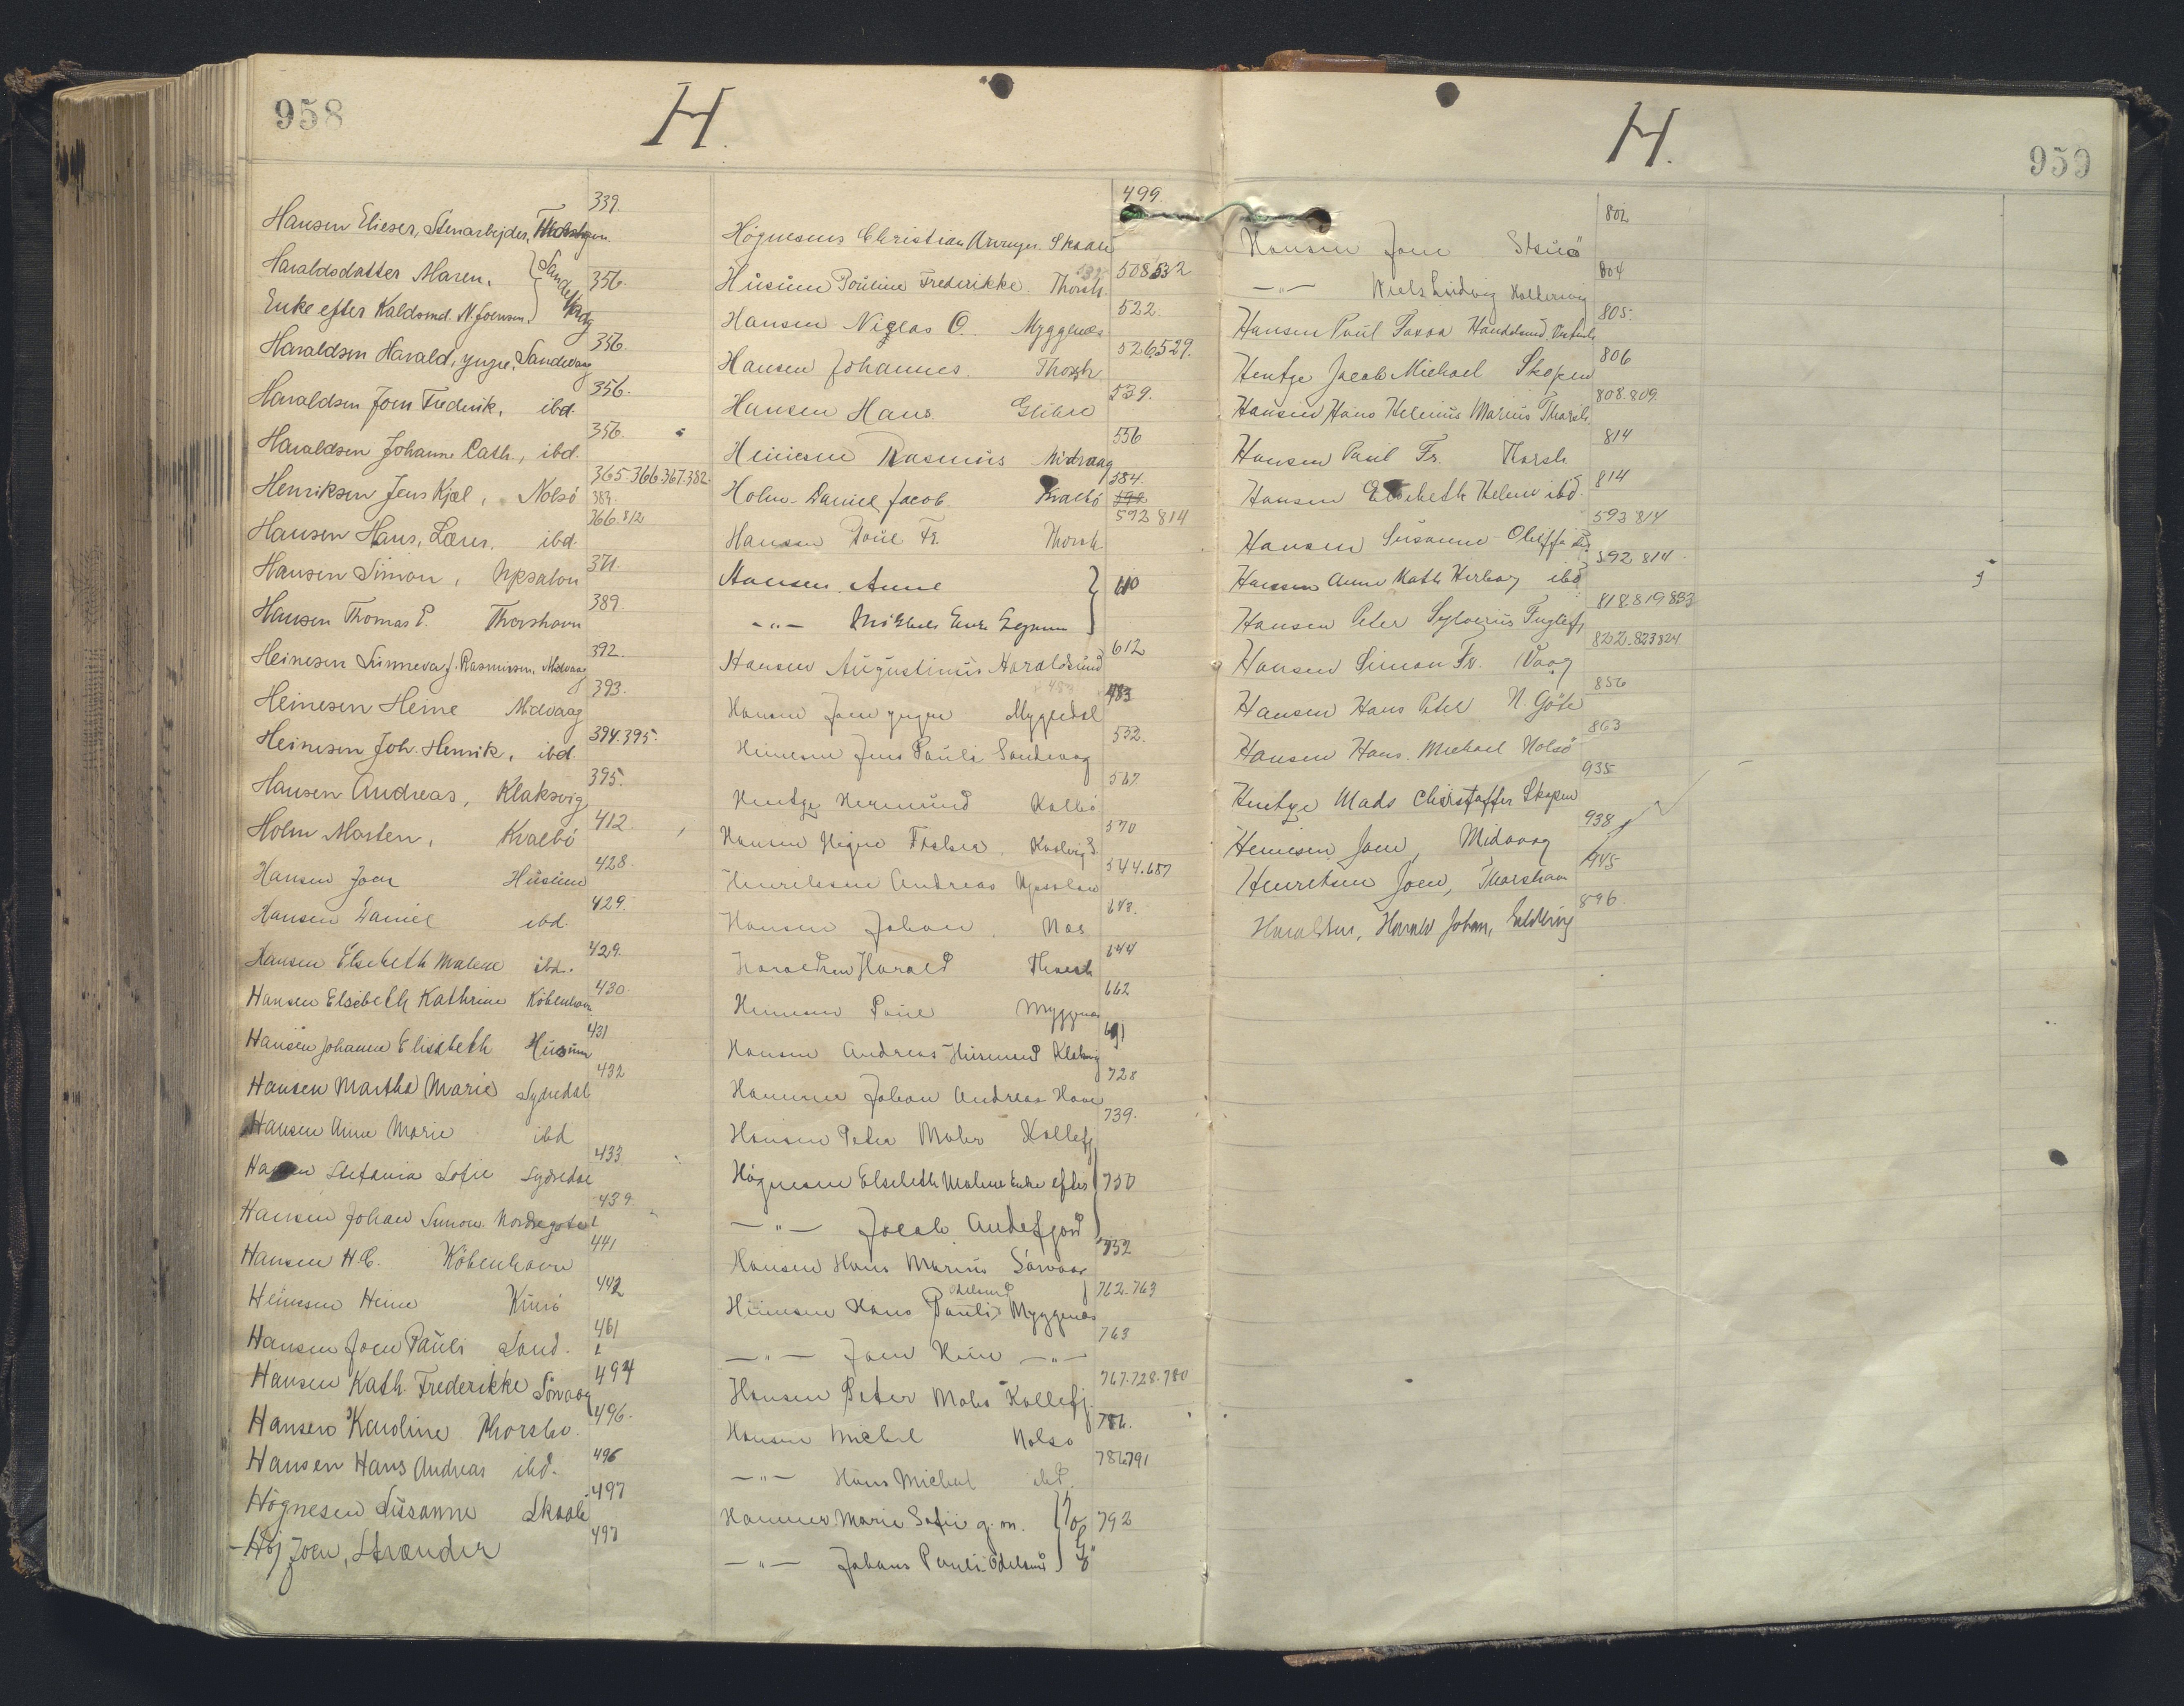 958
H.
Hansen Elieser, Stenarbejder, Thorshavn. 339.
Haraldsdatter Maren, } Sandevaag
Enke efter Kaldsmd. N. Joensen. } 356.
Haraldsen Harald, yngre, Sandevaag 356.
Haraldsen Joen Frederik, ibd. 356.
Haraldsen Johanne Cath., ibd. 356.
Henriksen Jens Kjæl, Nolsö 365.366.367.382. 383.
Hansen Hans, Lærer, ibd. 366.812
Hansen Simon, 371.
Hansen Thomas P. Thorshavn 389.
Heinesen Sunneva f. Rasmussen, Midvaag 392.
Heinesen Heine Midvaag 393.
Heinesen Joh. Henrik, ibd. 394.395.
Hansen Andreas, Klaksvig 395.
Holm Morten, Kvalbö 412.
Hansen Joen Húsum 428.
Hansen Daniel ibd. 429.
Hansen Elsebeth Malene ibd. 429.
Hansen Elsebeth Kathrine Köbenhavn 430.
Hansen Johanne Elisabeth Húsum 431
Hansen Marthe Marie Sydredal 432
Hansen Anne Marie ibd
Hansen Stefania Sofie Sydredal 433
Hansen Johan Simon Nordregote 439.
Hansen H.C. Köbenhavn 441
Heinesen Heine Kunö 442
Hansen Joen Pauli Sand. 461
Hansen Kath. Frederikke Sörvaag 494
Hansen Karoline Thorshv. 496.
Hansen Hans Andreas ibd. 496
Högnesen Súsanne Skaali 497
Höj Joen, Strænder 497
499.
Högnesens Christian Skaale
Húsum Pouline Frederikke. Thorsh. 508 532
Hansen Niclas O. Myggenæs 522.
Hansen Johannes. Thorsh 526.529.
Hansen Hans. Glibre 539.
Heinesen Rasmus Midvaag 556
Holm Daniel Jacob Kvalbö 584.
Hansen Poul Fr. Thorsh 592 814
Hansen Anne }
—"— Michels Enke } 610
Hansen Augustinus Haraldsund 612
Hansen Joen yngre Mygledal 483
Heinesen Jens Pauli Sandevaag 532.
Hentze Hermund Kolbö 567
Hansen Kvalvig 570
Henriksen Andreas 544.687
Hansen Johan. Næs 643.
Haraldsen Harald Thorsh 644
Heinesen Poul Myggenæs 662
Hansen Andreas Klaksvig 691
Hammer Johan Andreas 728
Hansen Peter Mohr Kollefj 739.
Högnesen Elsebeth Malene Enke efter } 750
—"— Jacob Andefjord }
Hansen Hans Marius Sörvaag 752
Heinesen Hans Pauli Odelsmd Myggenæs 762.763
—"— Joen Heine —"— 763
Hansen Peter Mohr Kollefj. 767.728.780
Hansen Michal Nolsö 786.
—"— Hans Michal ibd. 786 791
Hammer Marie Sofie g. m. } 792
—"— Johans Pauli Odelsmd }
H.
959
Hansen Joen 802
—"— Niels Ludvig 804
Hansen Poul 805.
Hentze Jacob Michael Skopen 806
Hansen Hans Helenus Marius Thorsh. 808.809
Hansen Poul Fr. Thorsh. 814
Hansen Elsebeth Helene ibd. 814
Hansen Súsanne 593 814
Hansen Anne Kath ibd 592 814
Hansen Peter Fuglefj 818.819 833
Hansen Simon Fr. Vaag 822.823 824
Hansen Hans Peter N. Göte 856
Hansen Hans. Michael Nolsö 863
Hentze Mads Christoffer Skopen 935
Heinesen Joen, Midvaag 938
Henriksen Joen, Thorshavn 945
Haraldsen, Harald Johan, 896.